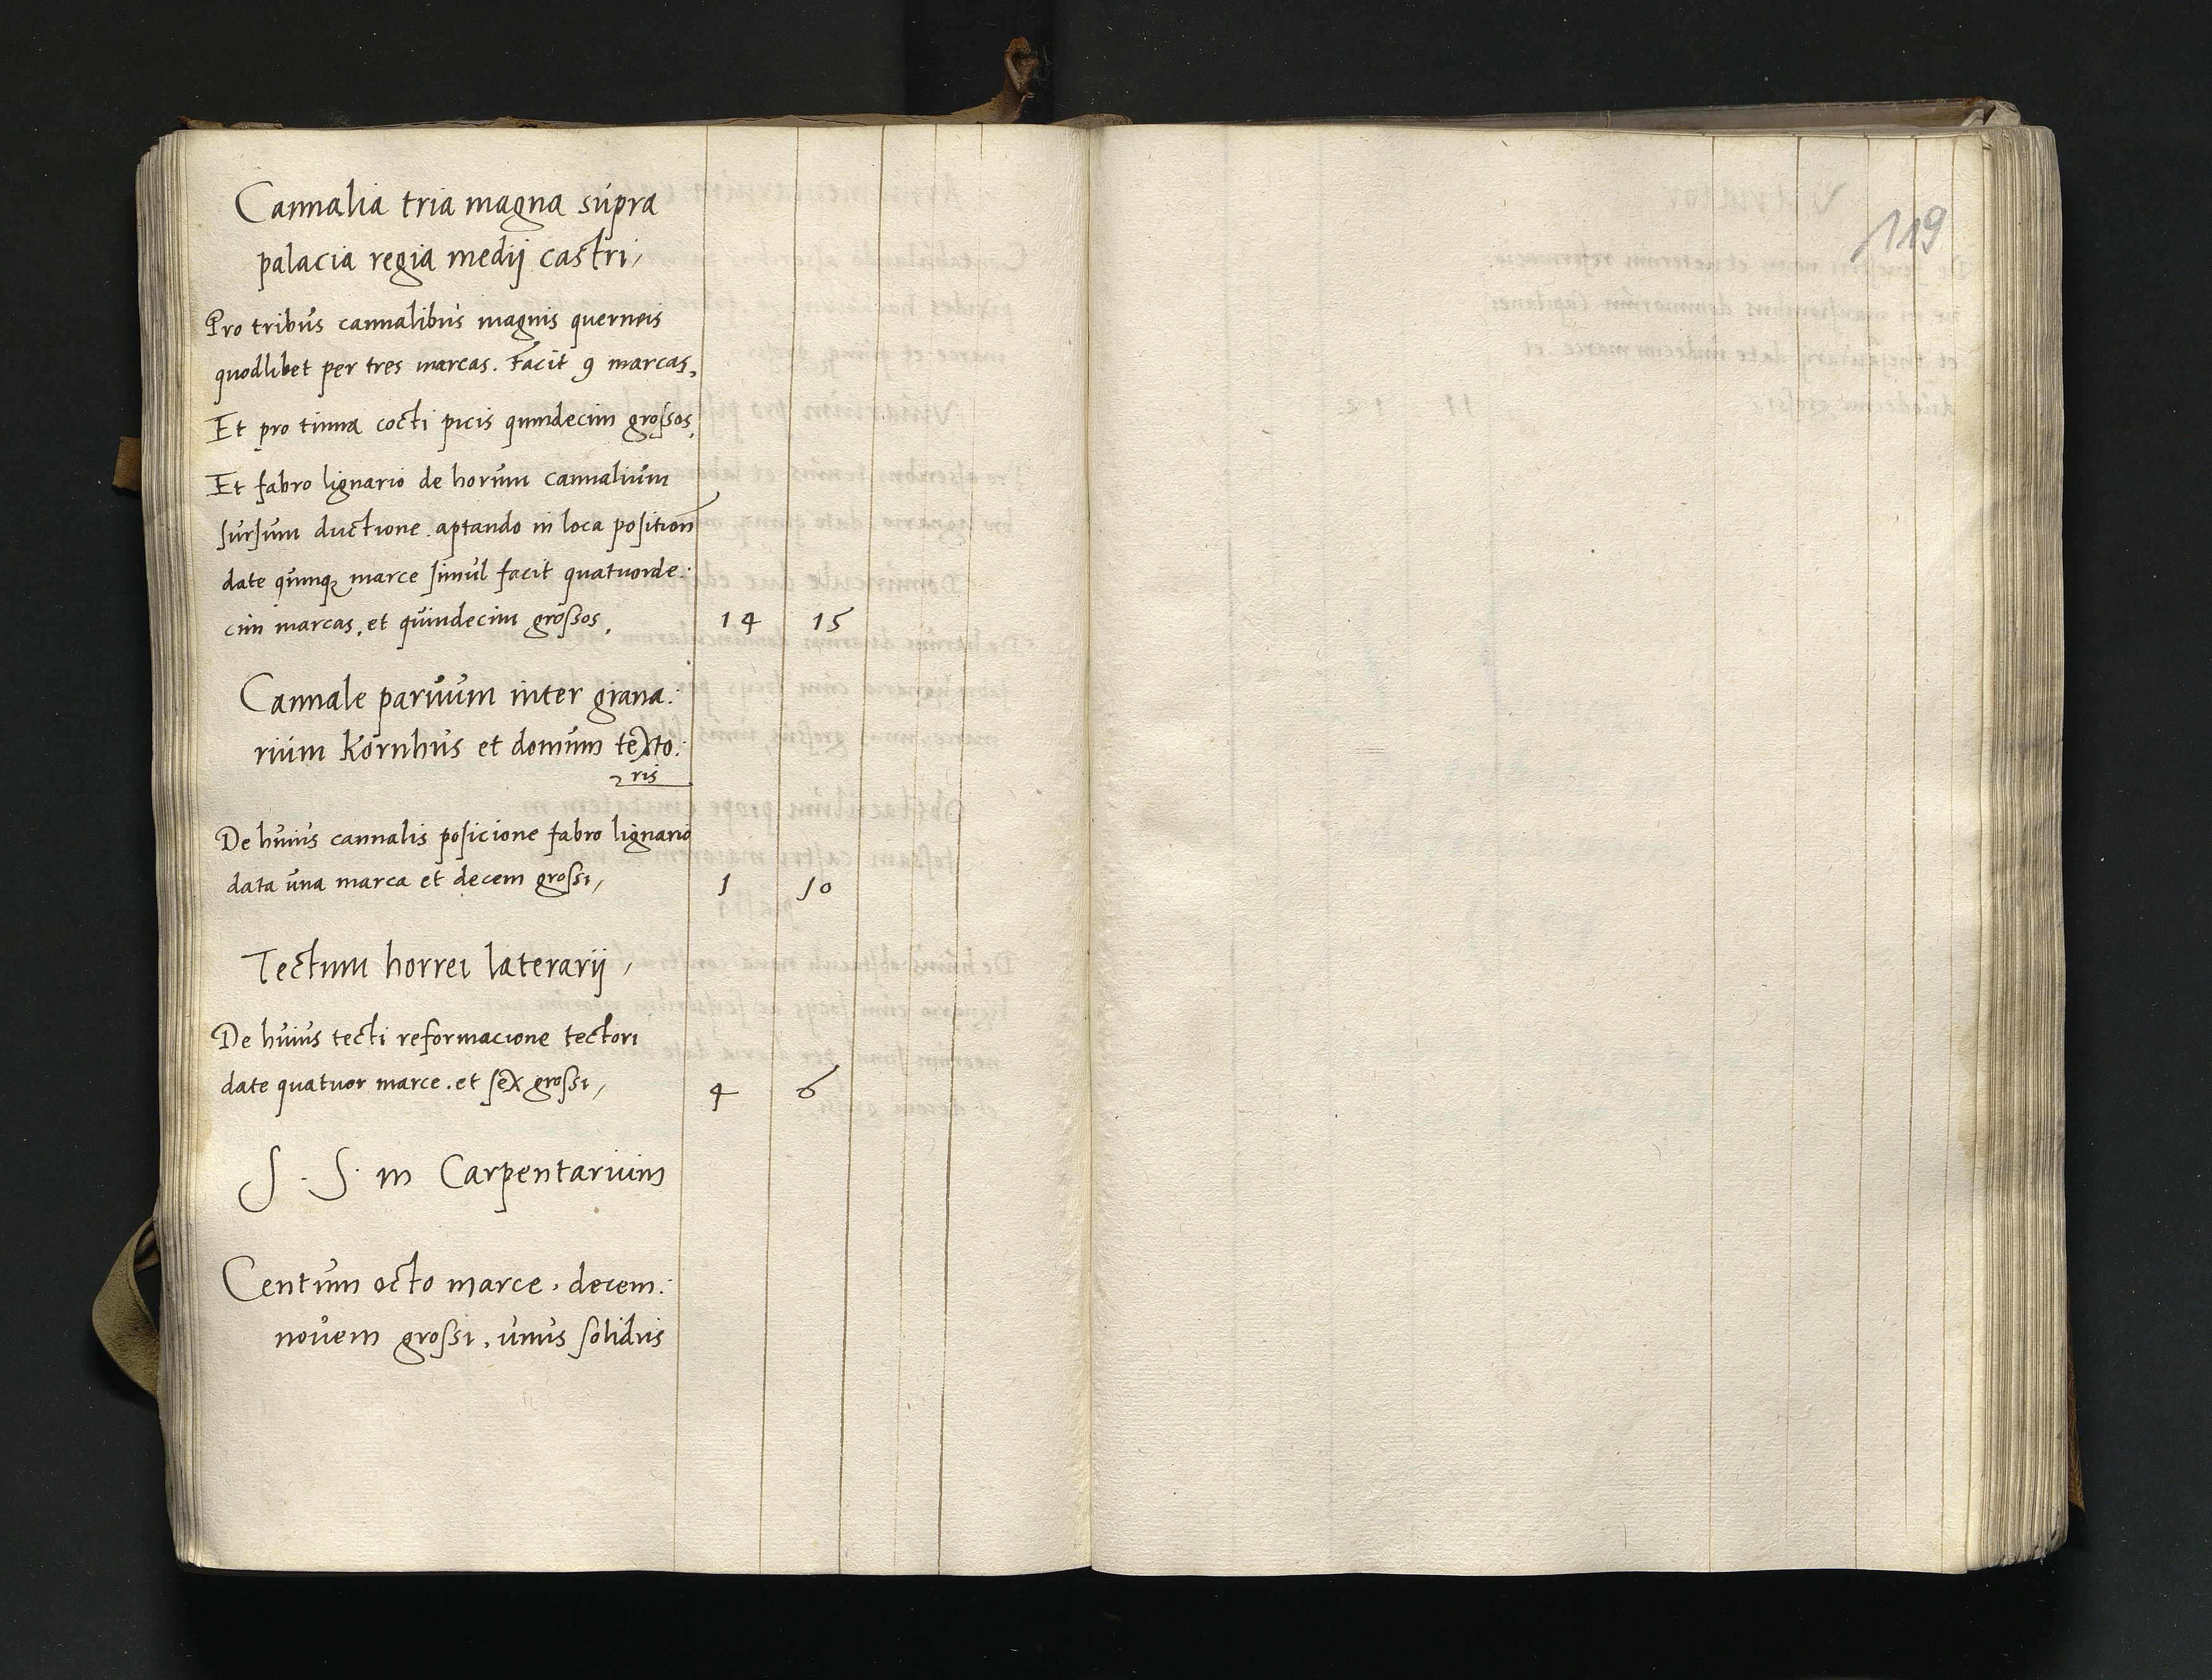 Cannalia tria magna supra
palacia regia medij castri,
Pro tribus cannalibus magnis querneis
quodlibet per tres marcas. Facit 9 marcas,
Et pro tinna cocti picis quindecim grossos,
Et fabro lignario de horum cannalium
sursum ductione aptando in loca position
date quinq marce simul facit quatuorde:
cim marcas, et quindecim grossos, 14 15
Cannale paruum inter grana:
rium Kornhus et domum texto:
ris
De huius cannalis posicione fabro lignario
data una marca et decem grossi, 1 10
Tectum horrei laterarij,
De huius tecti reformacione tectori
date quatuor marce. et sex grossi, 4 6
S. S. in Carpentarium
Centum octo marce, decem:
novem grossi, unus solidus
119